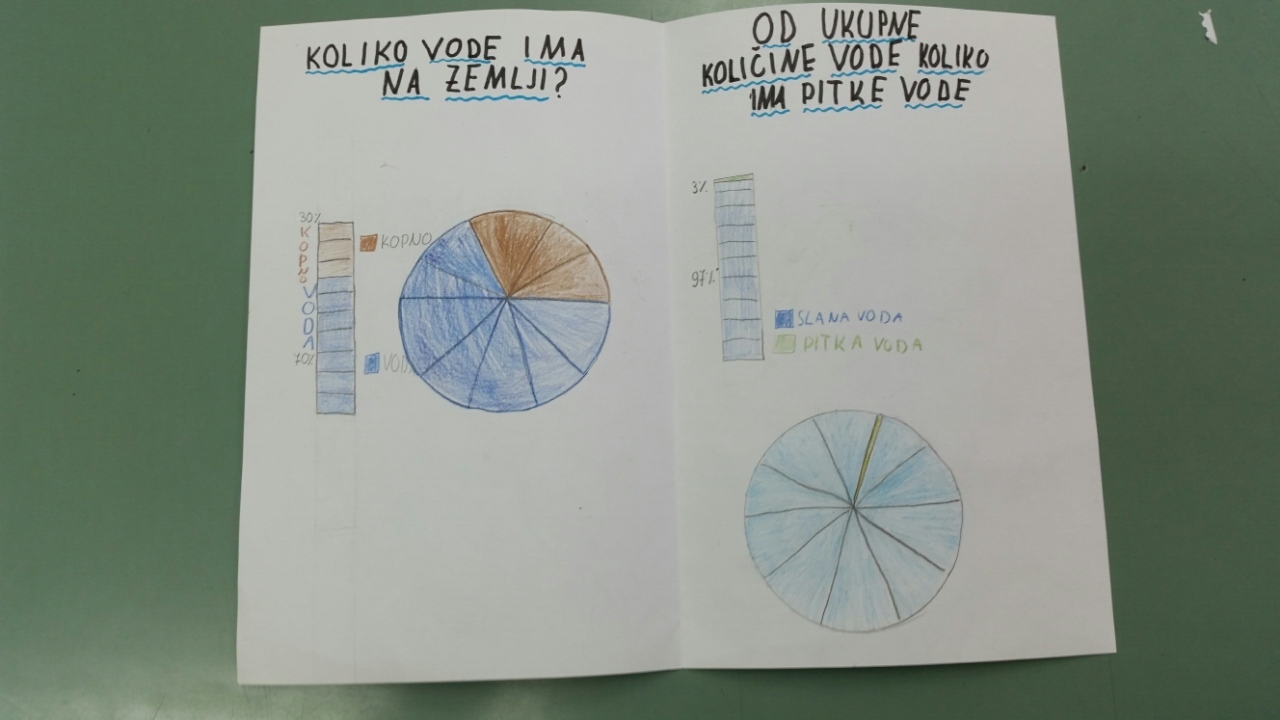 KOLIKO VODE IMA
NA ZEMLJI?
30%
KOPNO
VODA
70%
KOPNO
VODA
OD UKUPNE
KOLIČINE VODE KOLIKO
IMA PITKE VODE
3%
97%
SLANA VODA
PITKA VODA